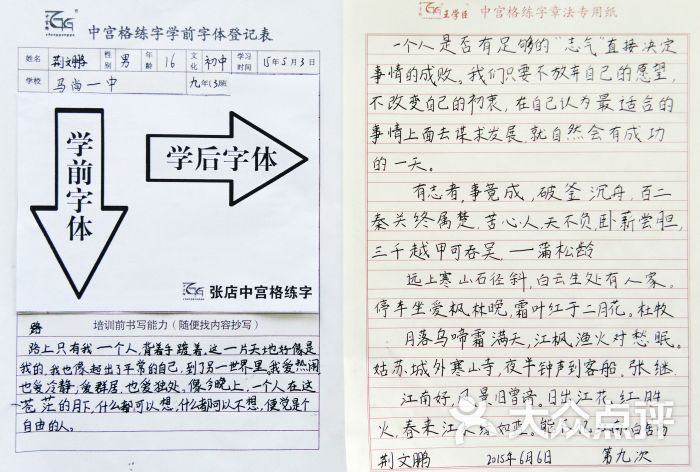 中宫格练字学前字体登记表
姓名 荆文鹏 性别 男 年龄 16 文化 初中 学习时间 15年5月3日
学校 马尚一中 九年13班
学前字体
学后字体
张店中宫格练字
培训前书写能力（随便找内容抄写）
路上只有我一个人,背着手踱着。这一片天地好像是
我的,我也像超出了平常的自己,到了另一世界里。我爱热闹
也爱冷静,爱群居,也爱独处。像今晚上,一个人在这
苍茫的月下,什么都可以想,什么都可以不想,便觉是个
自由的人。
王学臣 中宫格练字章法专用纸
一个人是否有足够的“志气”直接决定
事情的成败。我们只要不放弃自己的愿望,
不改变自己的初衷,在自己认为最适合的
事情上面去谋求发展,就自然会有成功
的一天。
有志者,事竟成,破釜沉舟,百二
秦关终属楚,苦心人,天不负,卧薪尝胆,
三千越甲可吞吴,一蒲松龄
远上寒山石径斜,白云生处有人家。
停车坐爱枫林晚,霜叶红于二月花。杜牧
月落乌啼霜满天,江枫渔火对愁眠。
姑苏城外寒山寺,夜半钟声到客船。张继
江南好,风景旧曾谙。日出江花红胜
火,春来江水绿如蓝。能不忆江南 白居易
大众点评
荆文鹏 2015年6月6日 第九次